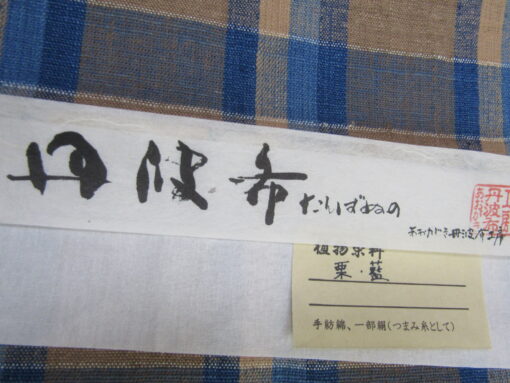 丹波布 たんばぬの
植物染料
栗・藍
手紡綿、一部絹(つまみ糸として)